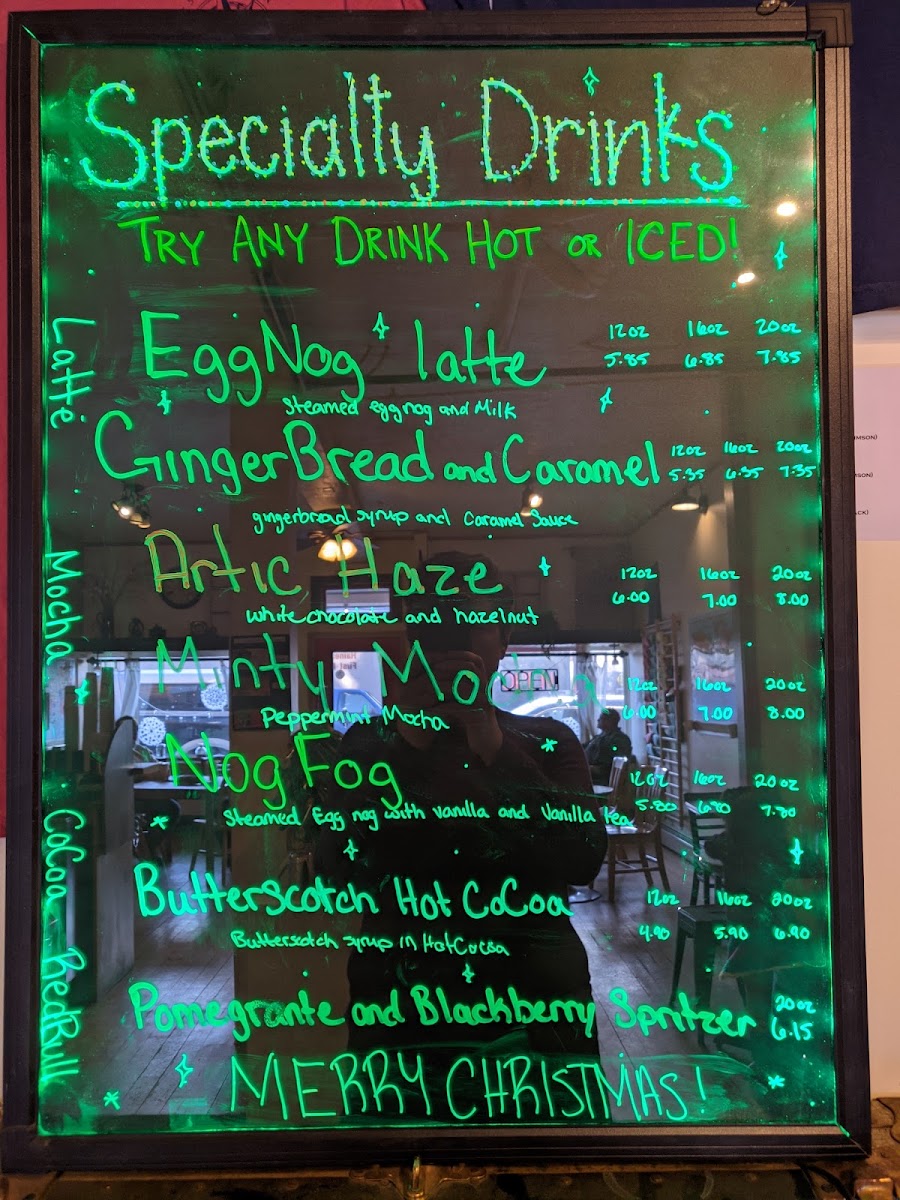 Specialty Drinks
TRY ANY DRINK HOT OR ICED!
EggNog latte 12oz 16oz 20oz
5.85 6.85 7.85
Steamed eggnog and Milk
GingerBread and Caramel 12oz 16oz 20oz
5.35 6.35 7.35
gingerbread syrup and Caramel Sauce
Artic Haze 12oz 16oz 20oz
6.00 7.00 8.00
white chocolate and hazelnut
Minty Mocha 12oz 16oz 20oz
6.00 7.00 8.00
Peppermint Mocha
OPEN
NogFog 12oz 16oz 20oz
5.80 6.80 7.80
Steamed Egg nog with vanilla and Vanilla tea
Butterscotch Hot CoCoa 12oz 16oz 20oz
4.90 5.90 6.90
Butterscotch syrup in HotCocoa
Pomegrante and Blackberry Spritzer 20oz
6.15
MERRY CHRISTMAS!
Latte Mocha CoCoa RedBull